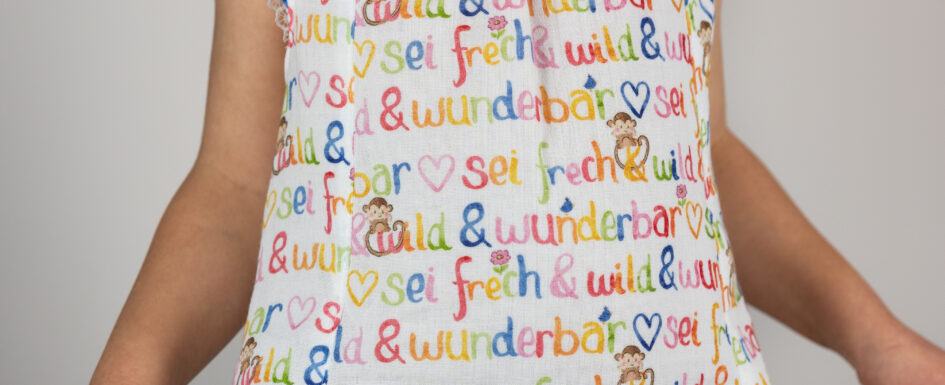 sei frech & wild & wun
bar ♡ s d & wunderbar ♡ sei f
wild & bar ♡ sei frech & wild &
sei fre & wild & wunderbar ♡
d & wun ♡ sei frech & wild & wun
bar ♡ s ld & wunderbar ♡ sei f
ild &